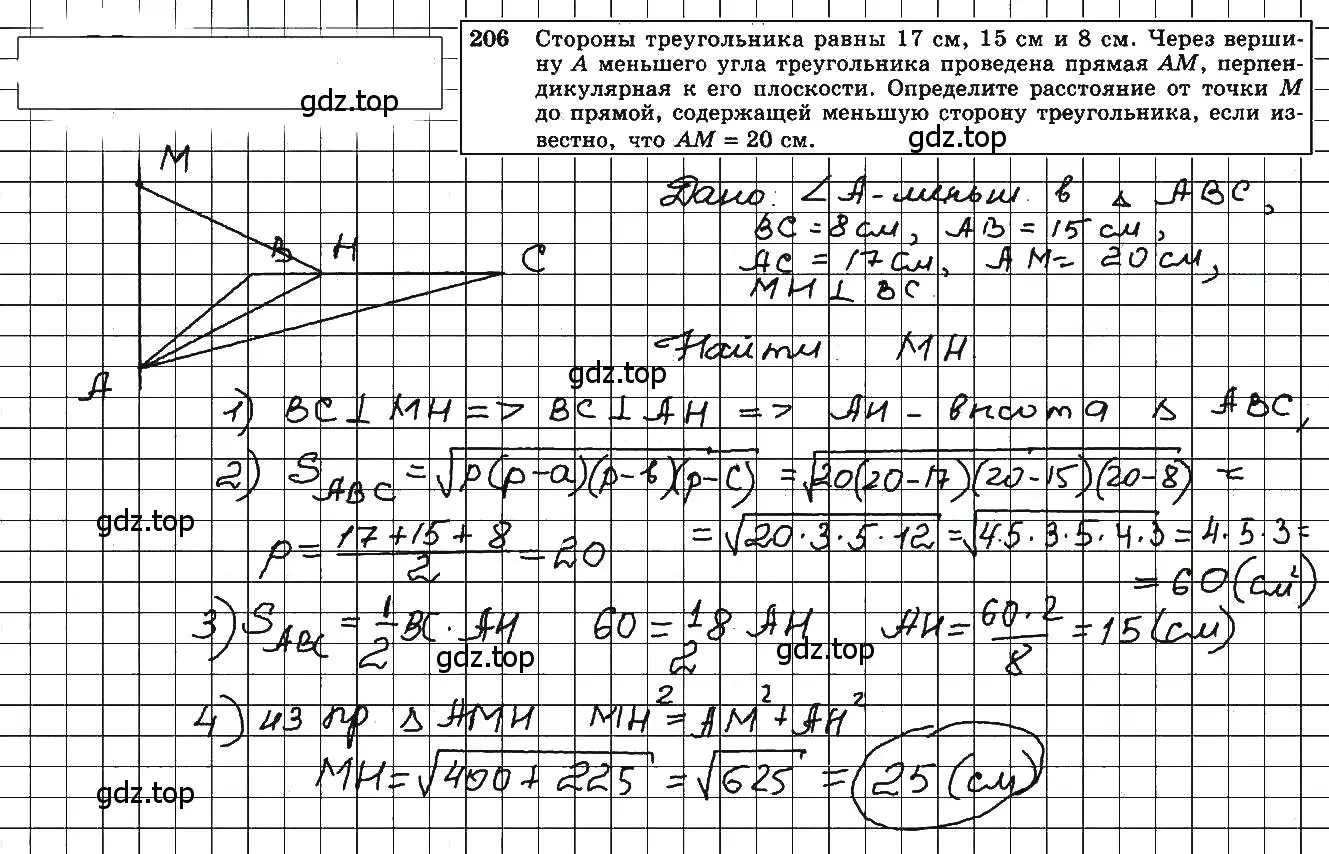 206 Стороны треугольника равны 17 см, 15 см и 8 см. Через верши-
ну A меньшего угла треугольника проведена прямая AM, перпен-
дикулярная к его плоскости. Определите расстояние от точки M
до прямой, содержащей меньшую сторону треугольника, если из-
вестно, что AM = 20 см.
gdz.top
gdz.top
M
B H C
A
Дано: ∠A - меньш. в Δ ABC,
BC = 8 см, AB = 15 см,
AC = 17 см, AM = 20 см,
MH ⊥ BC
Найти MH
gdz.top
1) BC ⊥ MH => BC ⊥ AH => AH - высота Δ ABC,
2) S_ABC = √(p(p-a)(p-b)(p-c)) = √(20(20-17)(20-15)(20-8)) =
gdz.top
p = (17+15+8)/2 = 20
= √(20·3·5·12) = √(4·5·3·5·4·3) = 4·5·3 =
= 60 (см²)
3) S_ABC = 1/2 BC · AH 60 = 1/2 8 AH AH = (60·2)/8 = 15 (см)
gdz.top
gdz.top
4) из пр Δ AMH MH² = AM² + AH²
MH = √(400 + 225) = √625 = 25 (см)
gdz.top